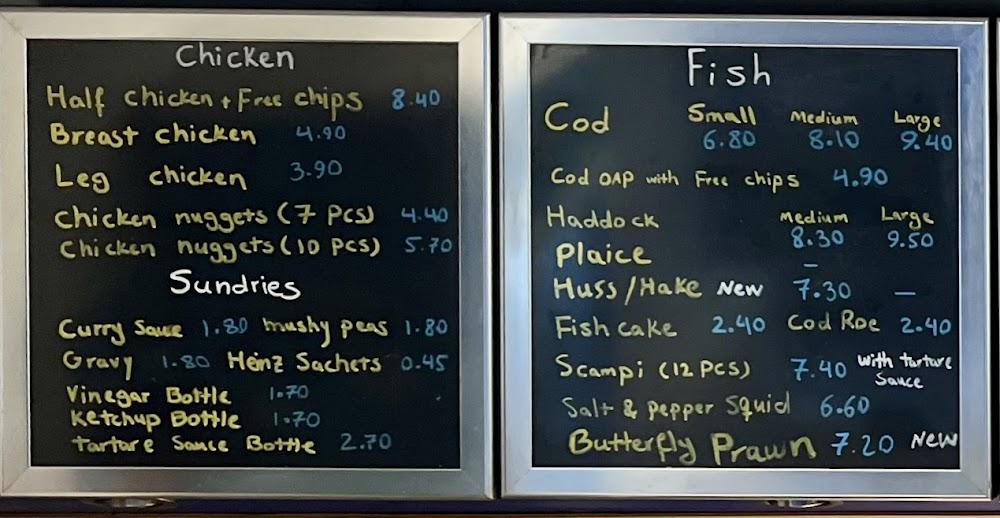 Chicken
Half chicken + Free chips 8.40
Breast chicken 4.90
Leg chicken 3.90
Chicken nuggets (7 PCS) 4.40
Chicken nuggets (10 PCS) 5.70
Sundries
Curry Sauce 1.80 mushy peas 1.80
Gravy 1.80 Heinz Sachets 0.45
Vinegar Bottle 1.70
Ketchup Bottle 1.70
tartare Sauce Bottle 2.70
Fish
Cod Small Medium Large
6.80 8.10 9.40
Cod OAP with Free chips 4.90
Haddock Medium Large
8.30 9.50
Plaice –
Huss/Hake New 7.30 –
Fish cake 2.40 Cod Roe 2.40
Scampi (12 PCS) 7.40 with tartare
Sauce
Salt & pepper Squid 6.60
Butterfly Prawn 7.20 New